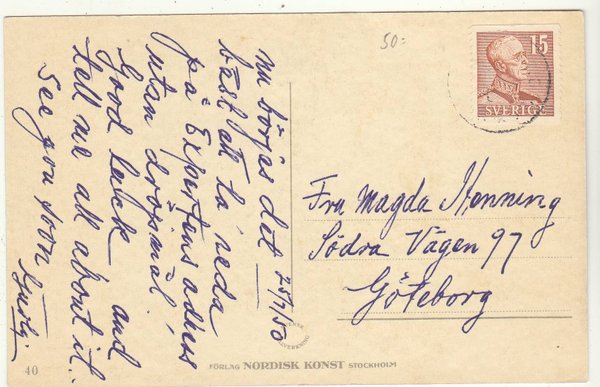 50:-
15
SVERIGE
nu börjas det 25/7/50
bäst att ta' reda
på Expertens adress
utan dröjsmål!
Good luck and
tell me all about it.
See you soon
Fru Magda Henning
Södra Vägen 97
Göteborg
40
FÖRLAG NORDISK KONST STOCKHOLM